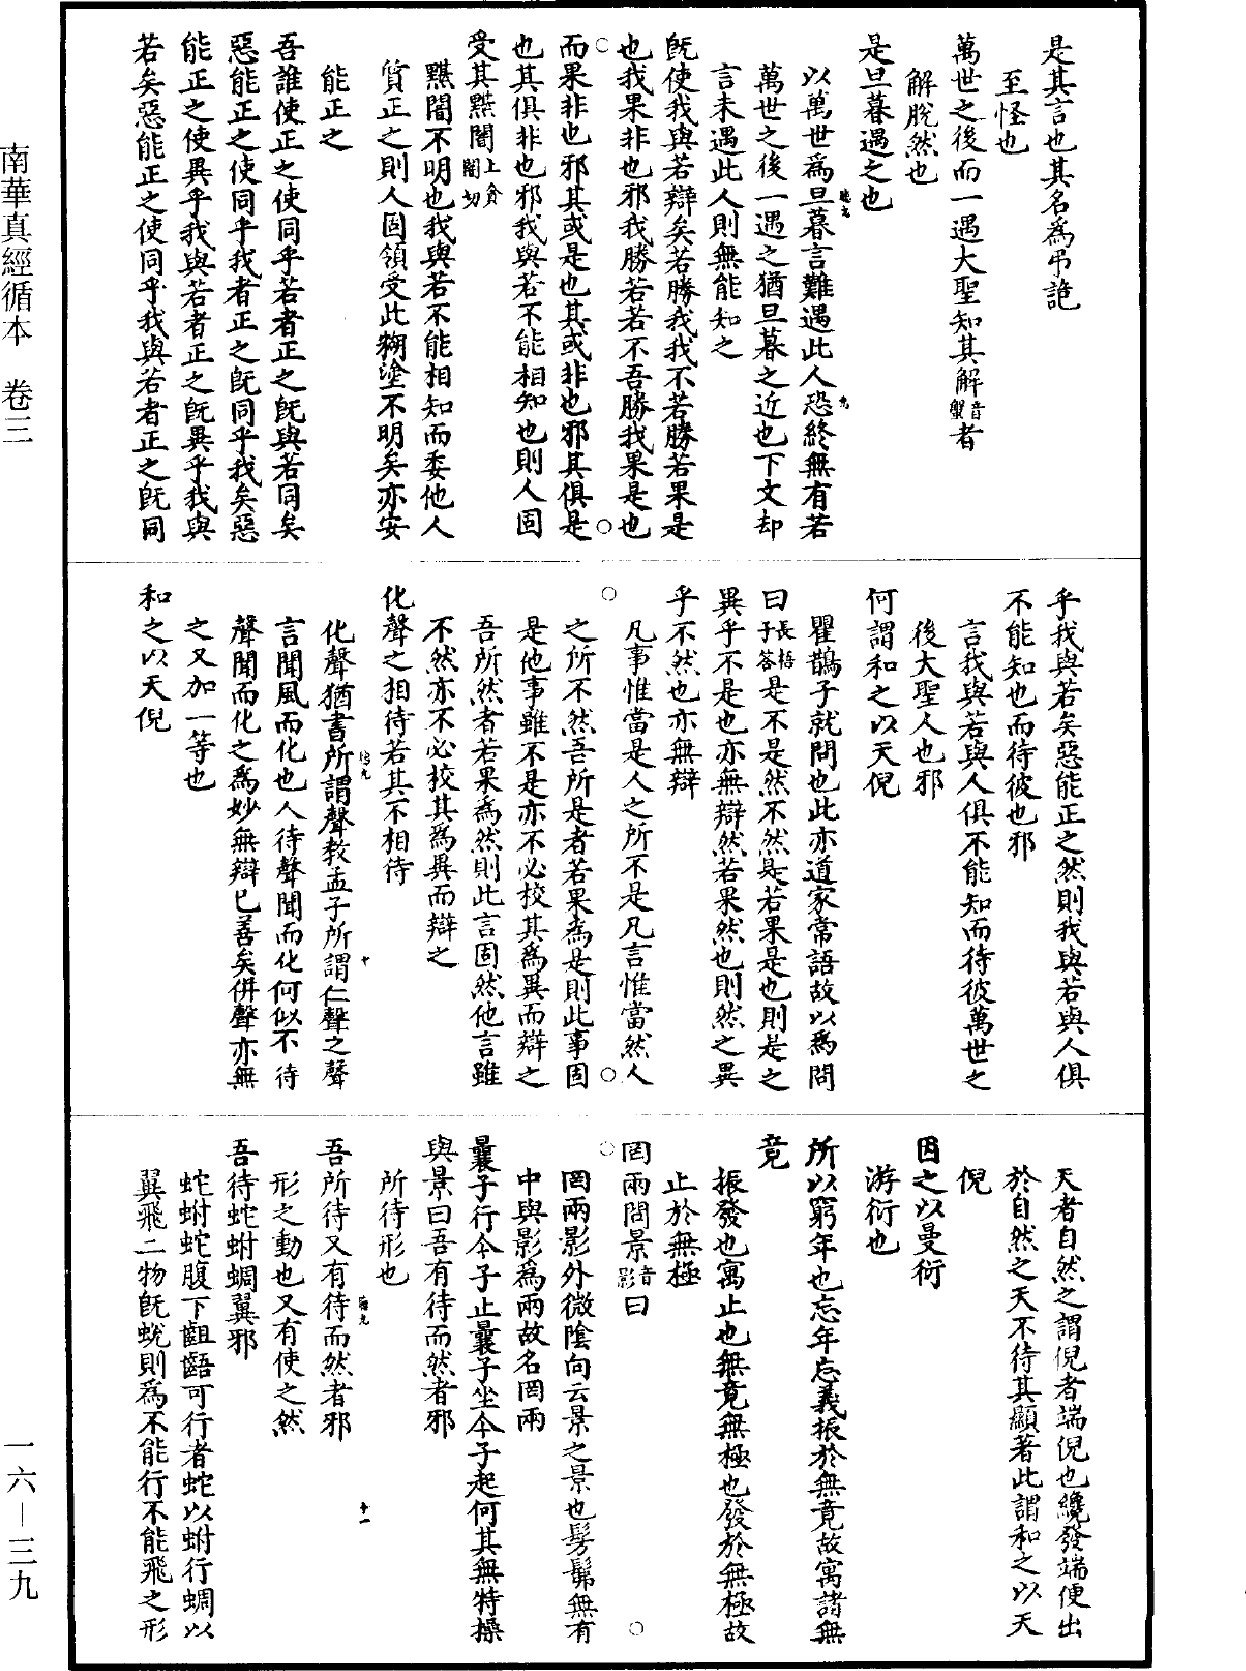 是其言也其名為弔詭
至怪也
萬世之後而一遇大聖知其解音蟹者
解脫然也
是旦暮遇之也
以萬世為旦暮言難遇此人恐終無有若
萬世之後一遇之猶旦暮之近也下文却
言未遇此人則無能知之
既使我與若辯矣若勝我我不若勝若果是
也我果非也邪我勝若若不吾勝我果是也
而果非也邪其或是也其或非也邪其俱是
也其俱非也邪我與若不能相知也則人固
受其黮闇上貪闇切
黮闇不明也我與若不能相知而委他人
質正之則人固領受此糊塗不明矣亦安
能正之
吾誰使正之使同乎若者正之既與若同矣
惡能正之使同乎我者正之既同乎我矣惡
能正之使異乎我與若者正之既異乎我與
若矣惡能正之使同乎我與若者正之既同
乎我與若矣惡能正之然則我與若與人俱
不能知也而待彼也邪
言我與若與人俱不能知而待彼萬世之
後大聖人也邪
何謂和之以天倪
瞿鵲子就問也此亦道家常語故以為問
曰長梧子答是不是然不然是若果是也則是之
異乎不是也亦無辯然若果然也則然之異
乎不然也亦無辯
凡事惟當是人之所不是凡言惟當然人
之所不然吾所是者若果為是則此事固
是他事雖不是亦不必校其為異而辯之
吾所然者若果為然則此言固然他言雖
不然亦不必校其為異而辯之
化聲之相待若其不相待
化聲猶書所謂聲教孟子所謂仁聲之聲
言聞風而化也人待聲聞而化何似不待
聲聞而化之為妙無辯已善矣併聲亦無
之又加一等也
和之以天倪
天者自然之謂倪者端倪也纔發端便出
於自然之天不待其顯著此謂和之以天
倪
因之以曼衍
游衍也
所以窮年也忘年忘義振於無竟故寓諸無
竟
振發也寓止也無竟無極也發於無極故
止於無極
罔兩問景音影曰
罔兩影外微陰向云景之景也髣髴無有
中與影為兩故名罔兩
曩子行今子止曩子坐今子起何其無特操
與景曰吾有待而然者邪
所待形也
吾所待又有待而然者邪
形之動也又有使之然
吾待蛇蚹蜩翼邪
蛇蚹蛇腹下齟齬可行者蛇以蚹行蜩以
翼飛二物既蛻則為不能行不能飛之形
南華真經循本　卷三
一六—三九